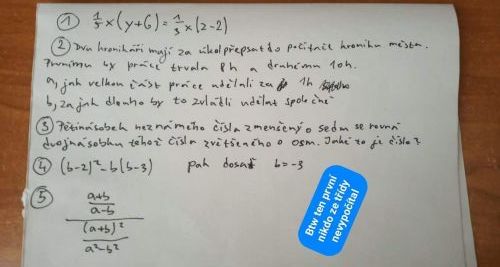 ① 1/5 x (y+6) = 1/3 x (2-2)
② Dva kronikáři mají za úkol přepsat do počítače kroniku města.
Prvnímu by práce trvala 8h a druhému 10h.
a, jak velkou část práce udělali za 1h
b, za jak dlouho by to zvládli udělat společně
③ Pětinásobek neznámého čísla zmenšený o sedm se rovná
dvojnásobku tehož čísla zvětšeného o osm. Jaké to je číslo?
④ (b-2)² - b(b-3) pak dosaď b=-3
⑤ a+b
a-b
(a+b)²
a²-b²
Btw ten první
nikdo ze třídy
nevypočítal